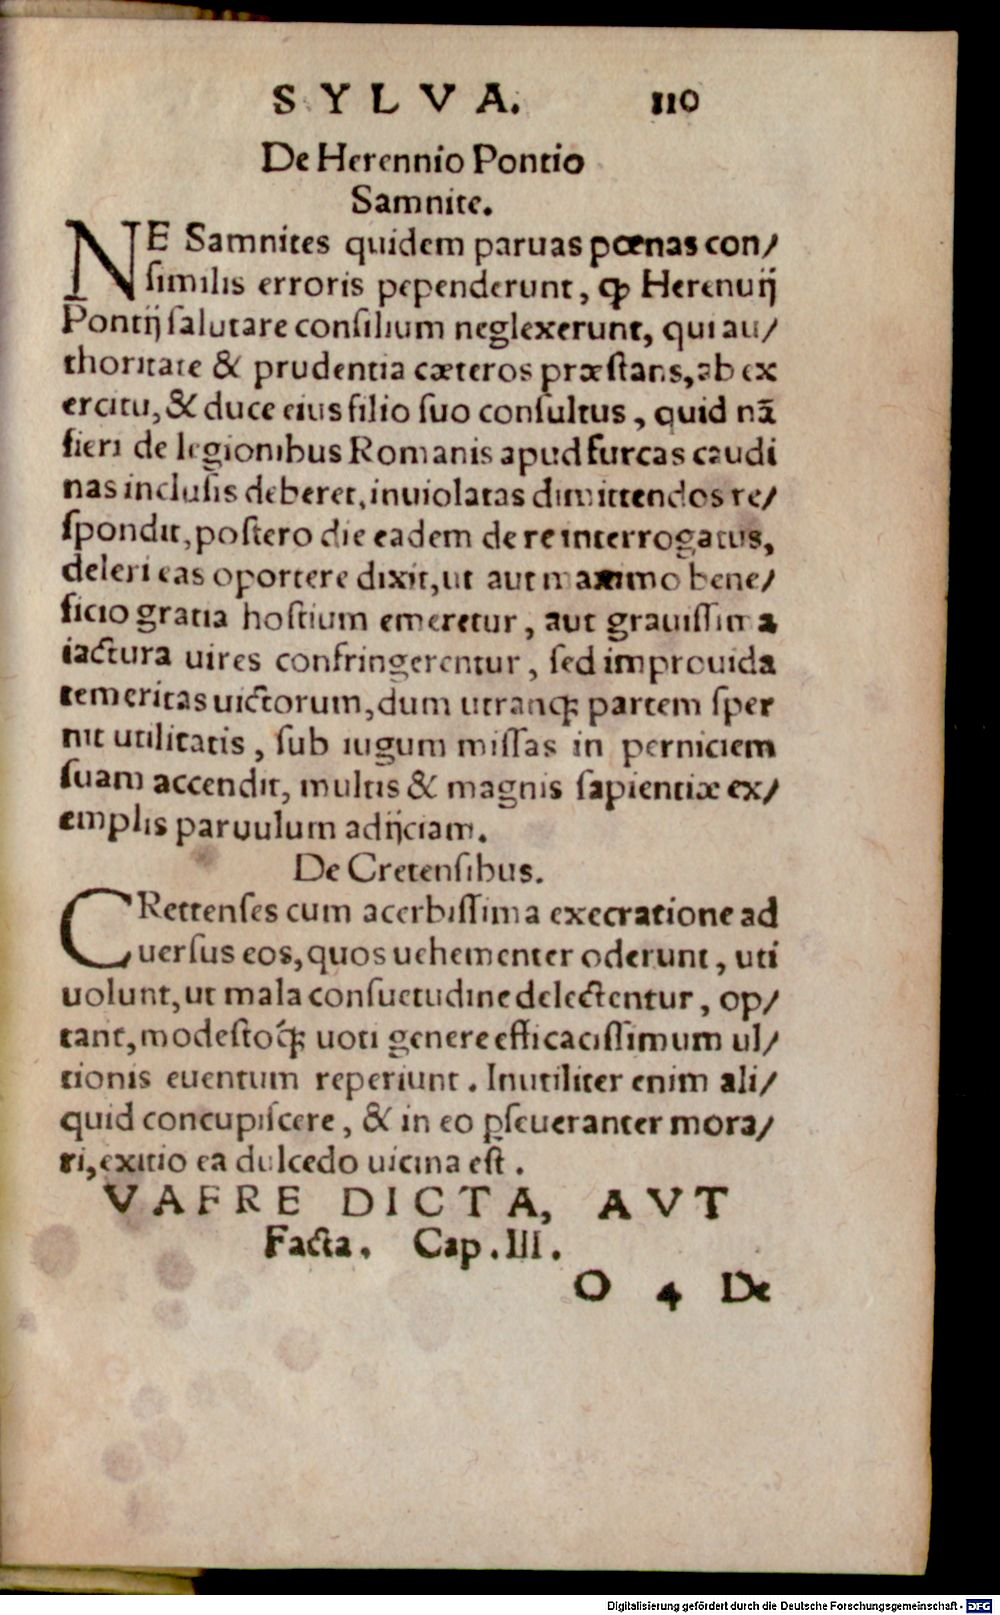 SYLVA. 110
De Herennio Pontio
Samnite.
NE Samnites quidem paruas pœnas con/
similis erroris pependerunt, ꝙ Herenuij
Pontij salutare consilium neglexerunt, qui au/
thoritate & prudentia cæteros præstans, ab ex
ercitu, & duce eius filio suo consultus, quid nā
fieri de legionibus Romanis apud furcas caudi
nas inclusis deberet, inuiolatas dimittendos re/
spondit, postero die eadem de re interrogatus,
deleri eas oportere dixit, ut aut maximo bene/
ficio gratia hostium emeretur, aut grauissima
iactura uires confringerentur, sed improuida
temeritas uictorum, dum utranq; partem sper
nit utilitatis, sub iugum missas in perniciem
suam accendit, multis & magnis sapientiæ ex/
emplis paruulum adijciam.
De Cretensibus.
CRettenses cum acerbissima execratione ad
uersus eos, quos uehementer oderunt, uti
uolunt, ut mala consuetudine delectentur, op/
tant, modestoq́; uoti genere efficacissimum ul/
tionis euentum reperiunt. Inutiliter enim ali/
quid concupiscere, & in eo ꝑseueranter mora/
ri, exitio ea dulcedo uicina est.
VAFRE DICTA, AVT
Facta. Cap. III.
O 4 De
Digitalisierung gefördert durch die Deutsche Forschungsgemeinschaft - DFG